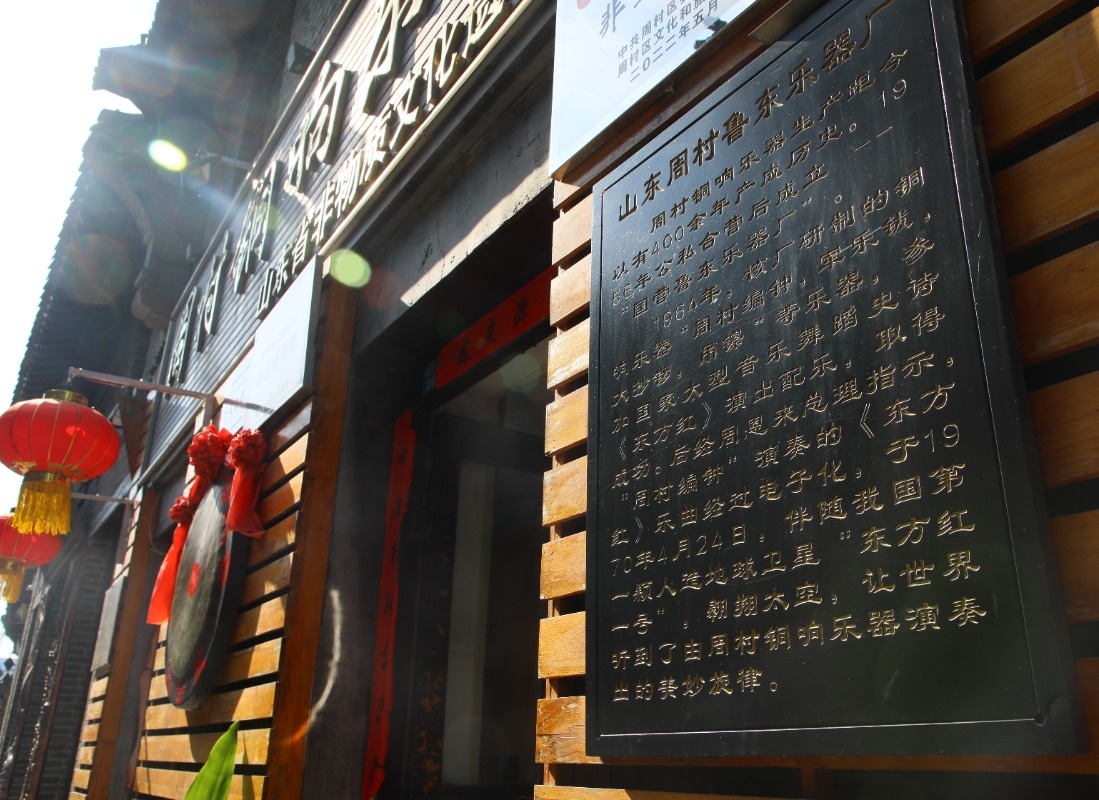 周村铜响乐
山东省非物质文化遗
非
中共周村区
周村区文化和旅
二〇二二年五月
山东周村鲁东乐器厂
周村铜响乐器生产距今
以有400余年产成历史。19
年公私合营后成立
“国营鲁东乐器厂”。
1964年，该厂研制的铜
响乐器“周村编钟，军乐钹，
大抄锣，用镲”等乐器，参
加国家大型音乐舞蹈史诗
《东方红》演出配乐，取得
成功。后经周恩来总理指示，
“周村编钟”演奏的《东方
红》乐曲经过电子化，于19
70年4月24日，伴随我国第
一颗人造地球卫星“东方红
一号”，翱翔太空，让世界
听到了由周村铜响乐器演奏
出的美妙旋律。